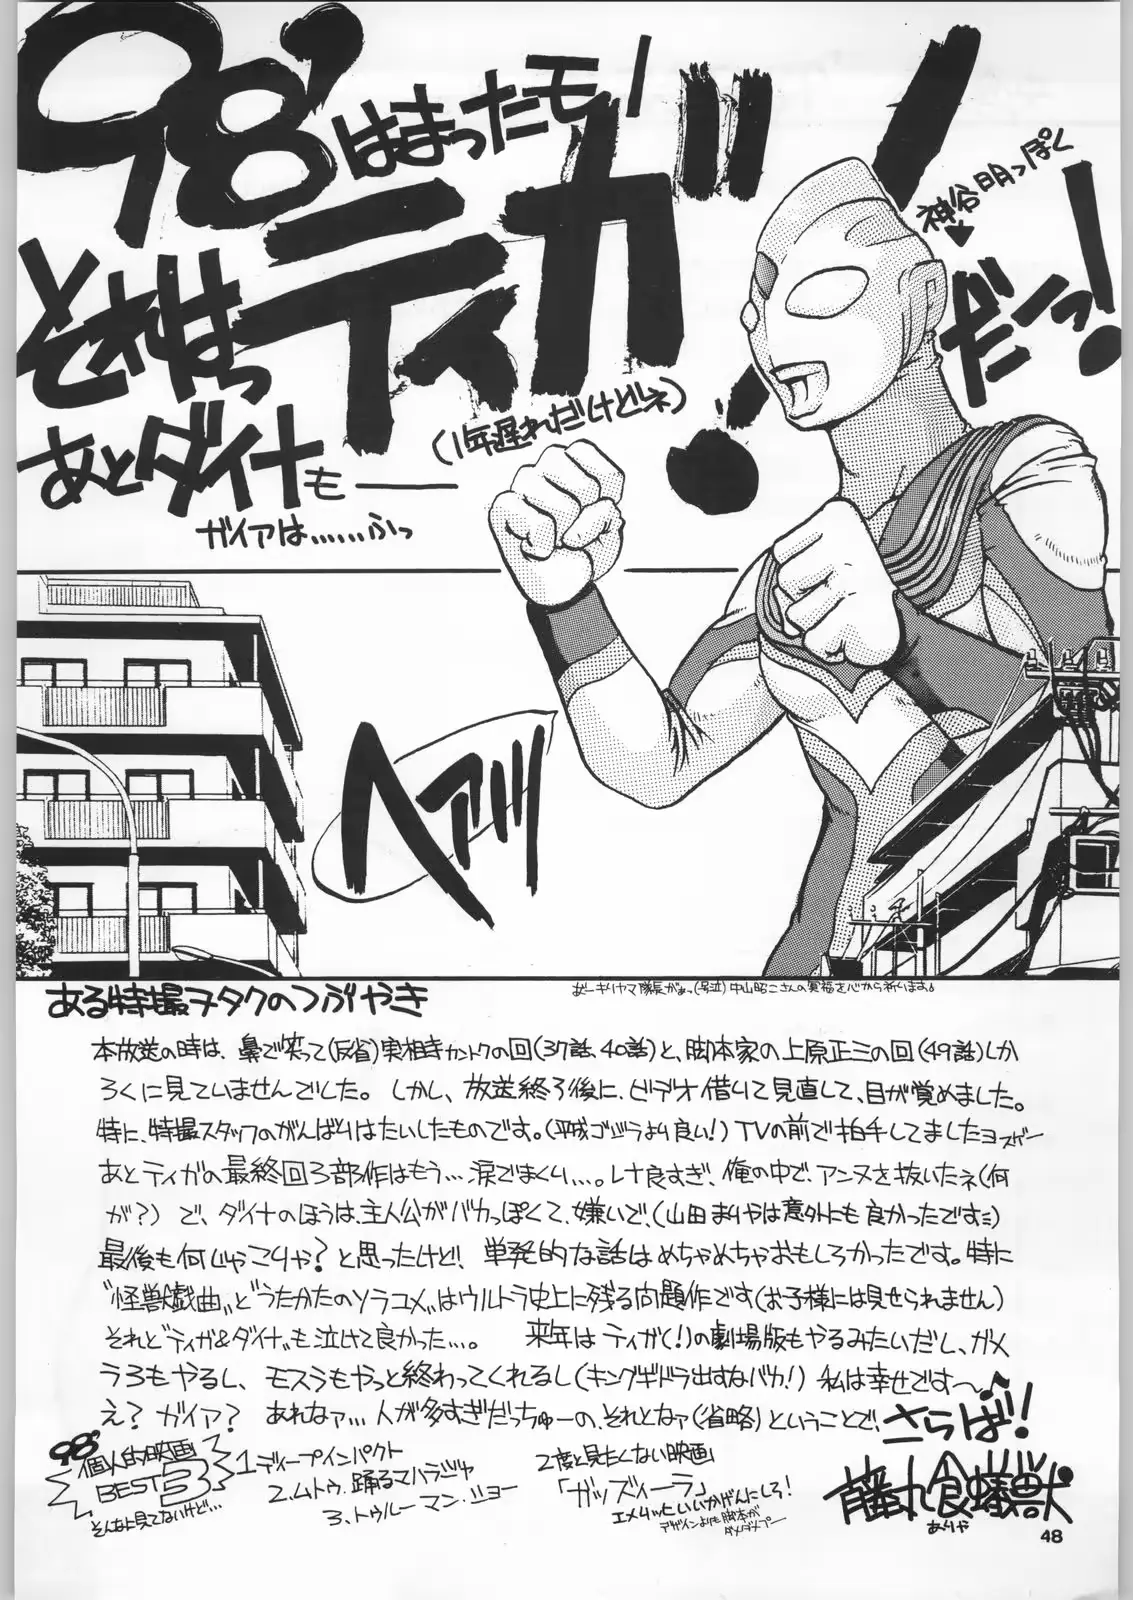 98'
はまったモノ
神谷明っぽく
それはっ
ティガ!
だーっ!
(1年遅れだけどネ)
あとダイナも――
ガイアは……ふっ
ヘアッ
あるる特撮ヲタクのつぶやき
おーキリヤマ隊長がぁっ(号泣)中山昭二さんの冥福を心から祈います。
本放送の時は、鼻で笑って(反省)実相寺カントクの回(37話、40話)と、脚本家の上原正三の回(49話)しか
ろくに見ていませんでした。しかし、放送終了後に、ビデオ借りて見直して、目が覚めました。
特に、特撮スタッフのがんばりはたいしたものです。(平成ゴジラより良い!) TVの前で拍手してましたヨスゲー
あとティガの最終回3部作はもう…涙でまくり…。レナ良すぎ、俺の中で、アンヌを抜いたネ(何
が?) で、ダイナのほうは、主人公がバカっぽくて、嫌いで、(山田まりやは意外にも良かったです)
最後も何じゃこりゃ?と思ったけど!単発的な話はめちゃめちゃおもしろかったです。特に
"怪獣戯曲"と"うたかたのソラユメ"はウルトラ史上に残る問題作です(お子様には見せられません)
それと"ティガ&ダイナ"も泣けて良かった…。 来年はティガ(!)の劇場版もやるみたいだし、ガメ
ラ3もやるし、モスラもやっと終わってくれるし(キングギドラ出すなバカ!) 私は幸せです〜♪
え? ガイア? あれなァ…人が多すぎだっちゅーの、それとなァ(省略)ということで、さらば!!
98'
個人的映画
BEST3
そんなに見てないけど…
1ディープインパクト
2.ムトゥ、踊るマハラジャ
3、トゥルーマン・ショー
2度と見たくない映画
「ガッズィーラ」
エメリッヒいいかげんにしろ!
デザインよりも脚本が
ダメダメプー
食蟻獣
ありくい
48